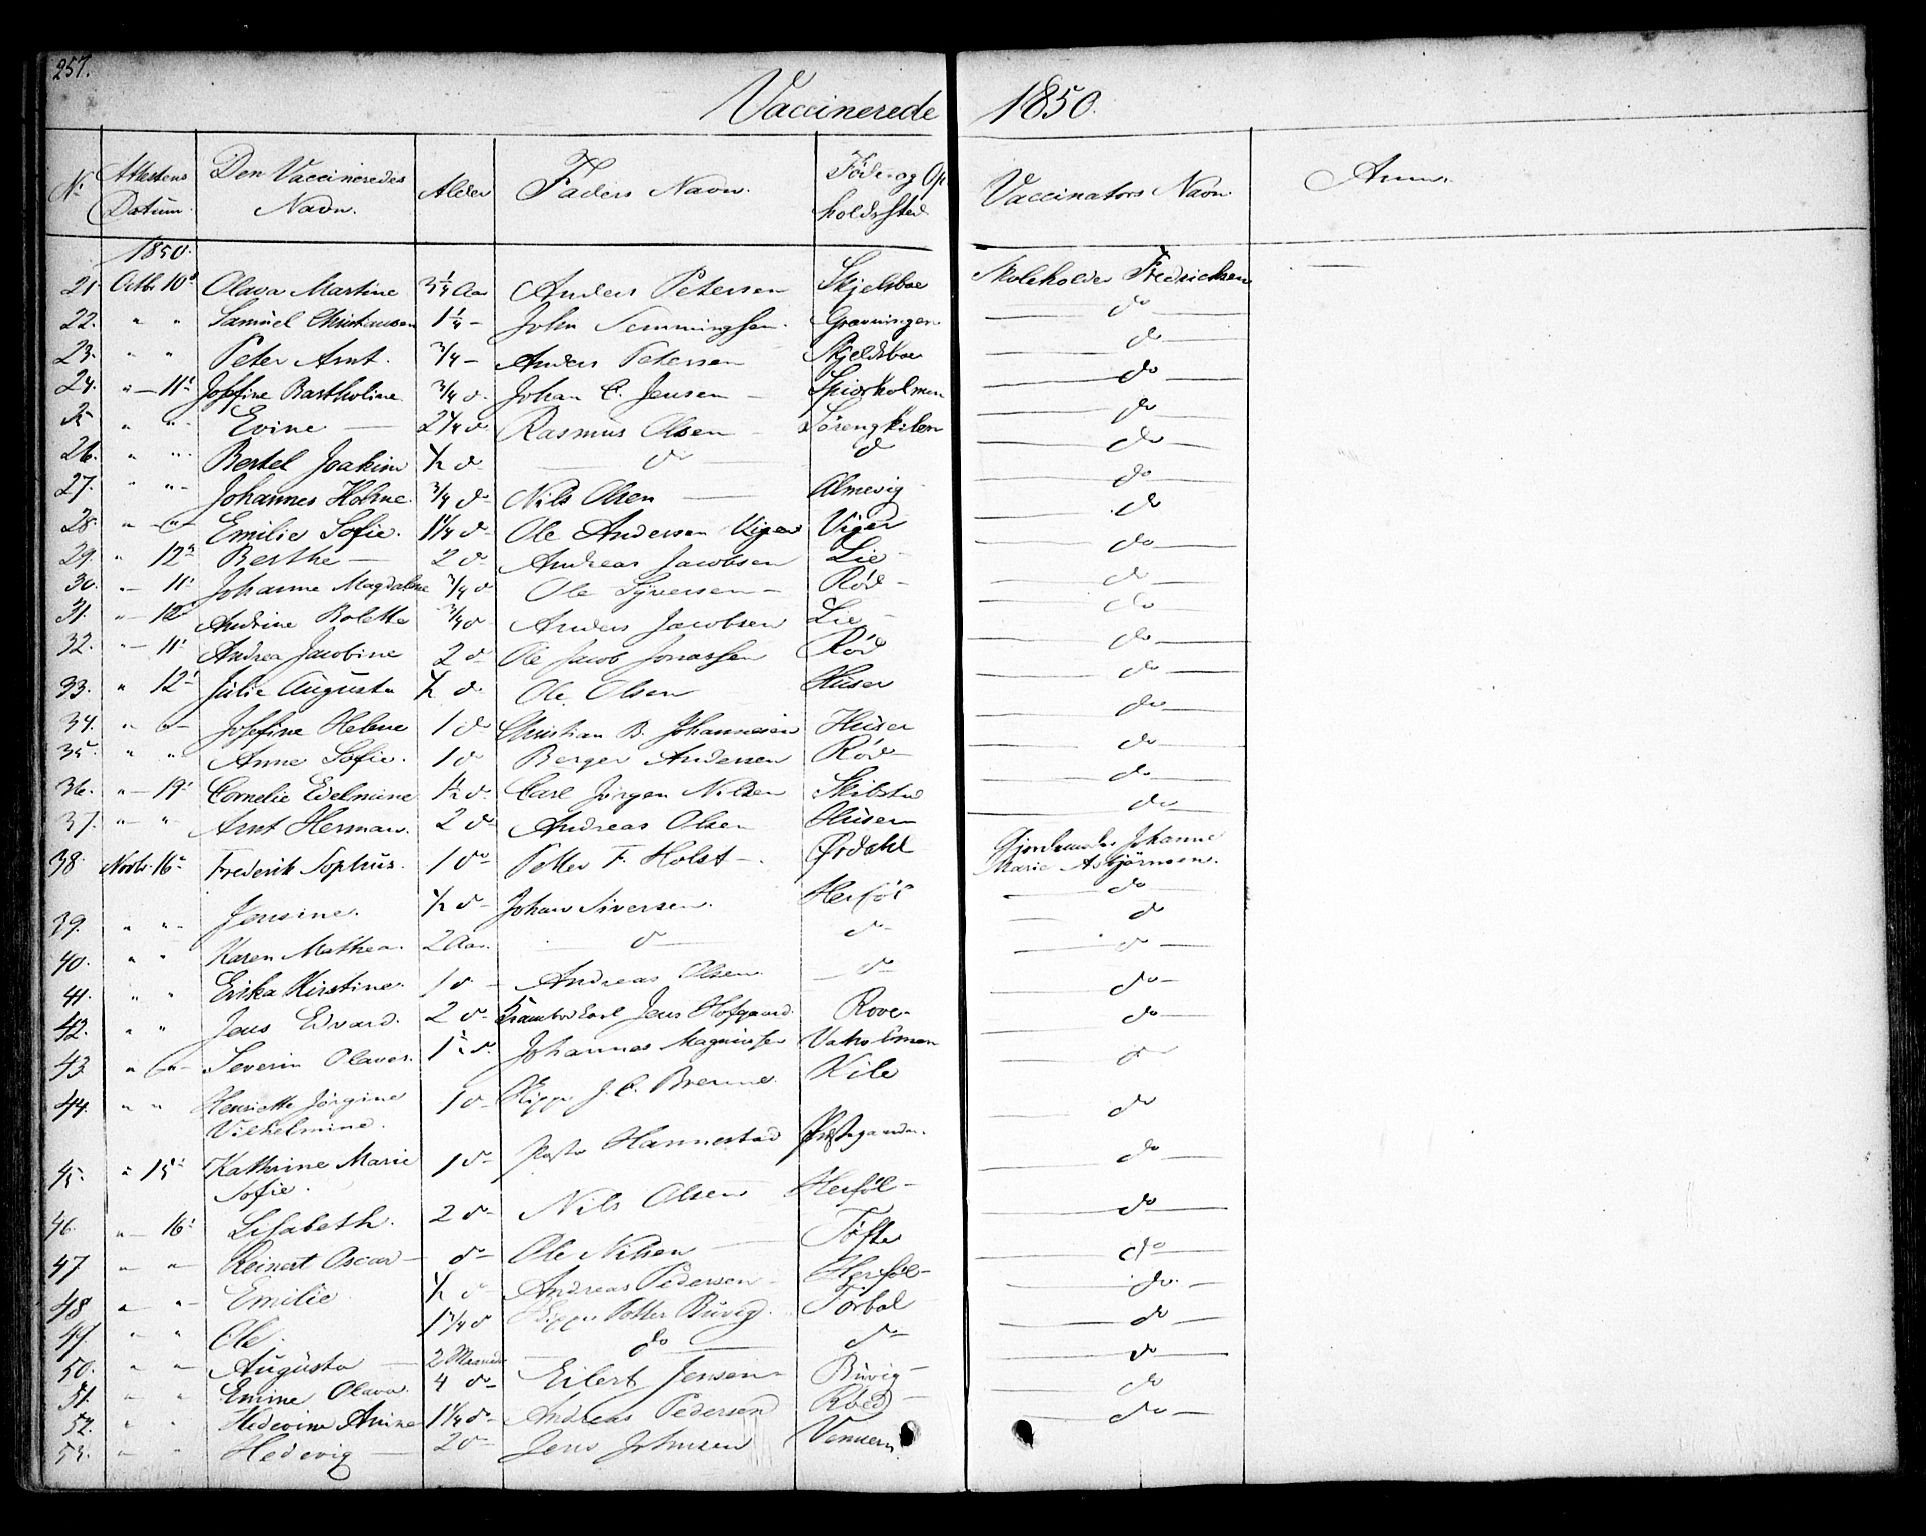 257.
Vaccinerede 1850.
No Attestens Datum. Den Vaccineredes Navn. Alder Faders Navn. Føde- og Opholdssted Vaccinators Navn. Anm.
1850.
21. Octbr 10de Olava Martine 3 1/4 Aar Anders Petersen Skjelsboe Skoleholder Fredricksen
22. " " Samuel Christiansen 1 1/4 – John Semmingsen. Gravningen do
23. " " Peter Arnt. 3/4 – Anders Petersen Skjeldsboe do
24. " – 11te Josefine Bartholine 3/4 do. Johan C. Jensen – Spiorholmen do
25 " " Evine — 2 1/4 do Rasmus Olsen – Sørengkilen do
26. " " Bertel Joakim 1/2 do — do — do do
27. " " Johannes Holme 3/4 do Nils Olsen — Almevig do
28. " " – Emilie Sofie. 1 1/4 do Ole Andersen Viger Viger do
29. " 12te Berthe — 2 do Andreas Jacobsen Lie – do
30. " – 11te Johanne Magdalene 3/4 do Ole Syversen – Rød – do
31. " – 12te Andrine Bolette 3/4 do Anders Jacobsen Lie – do
32. " – 11te Andrea Jacobine 2 do Ole Jacob Jonassen Rød do
33. " 12te Julie Augusta 1/2 do. Ole Olsen Huser do
34. " " – Josefine Helene 1 do Christian B. Johannesen Huser do
35. " " Anne Sofie. 1 do Berger Andersen Rød do
36. " – 19de Cornelie Edelmine 1 1/2 do. Carl Jørgen Nilsen Skibstad do
37. " – " Arnt Herman. 2 do Andreas Olsen Husene do
38. Novbr 16de Frederik Sophus. 1 do Petter F. Holst –. Ørdahl Gjordemoder Johanne
Marie Asbjørnsen.
39. " " – Jensine. 1/2 do – Johan Siversen. Herføl do
40. " " Karen Mathea. 2 Aar. — do — do do
41. " " Erika Kirstine. 1 do – Andreas Olsen. – do do
42. " " Jens Edvard. 2 do – Jens Hofgaard Rove – do
43. " " – Severin Olaves. 1 1/2 do. Johannes Magnussen Vaholmen do
44. " " Henriette Jørgine 1 do – J. C. Brenne. Kile do
Vilhelmine.
45. " 15de Kathrine Marie 1 do – Hannestad Præstegaarden. do
Sofie.
46. " – 16de Lisabeth. 2 do – Nils Olsen Herføl – do
47 " " Reinert Oscar – do – Ole Nilsen — Tøfte do
48 " " – Emilie. 1/2 do Andreas Pedersen – Herføl – do
49. " " Ole. 1 3/4 do Petter Buvig. Torbal do
50. " " – Augusta — 2 Maaneder — do — do – do
51. " " Emine Olava. 4 do – Eilert Jensen – Buvig – do
52. " " Hedevine Anine 1 1/4 do – Andreas Pedersen Røed – do
53. " " Hedevig — 2 do – Jens Johnsen do